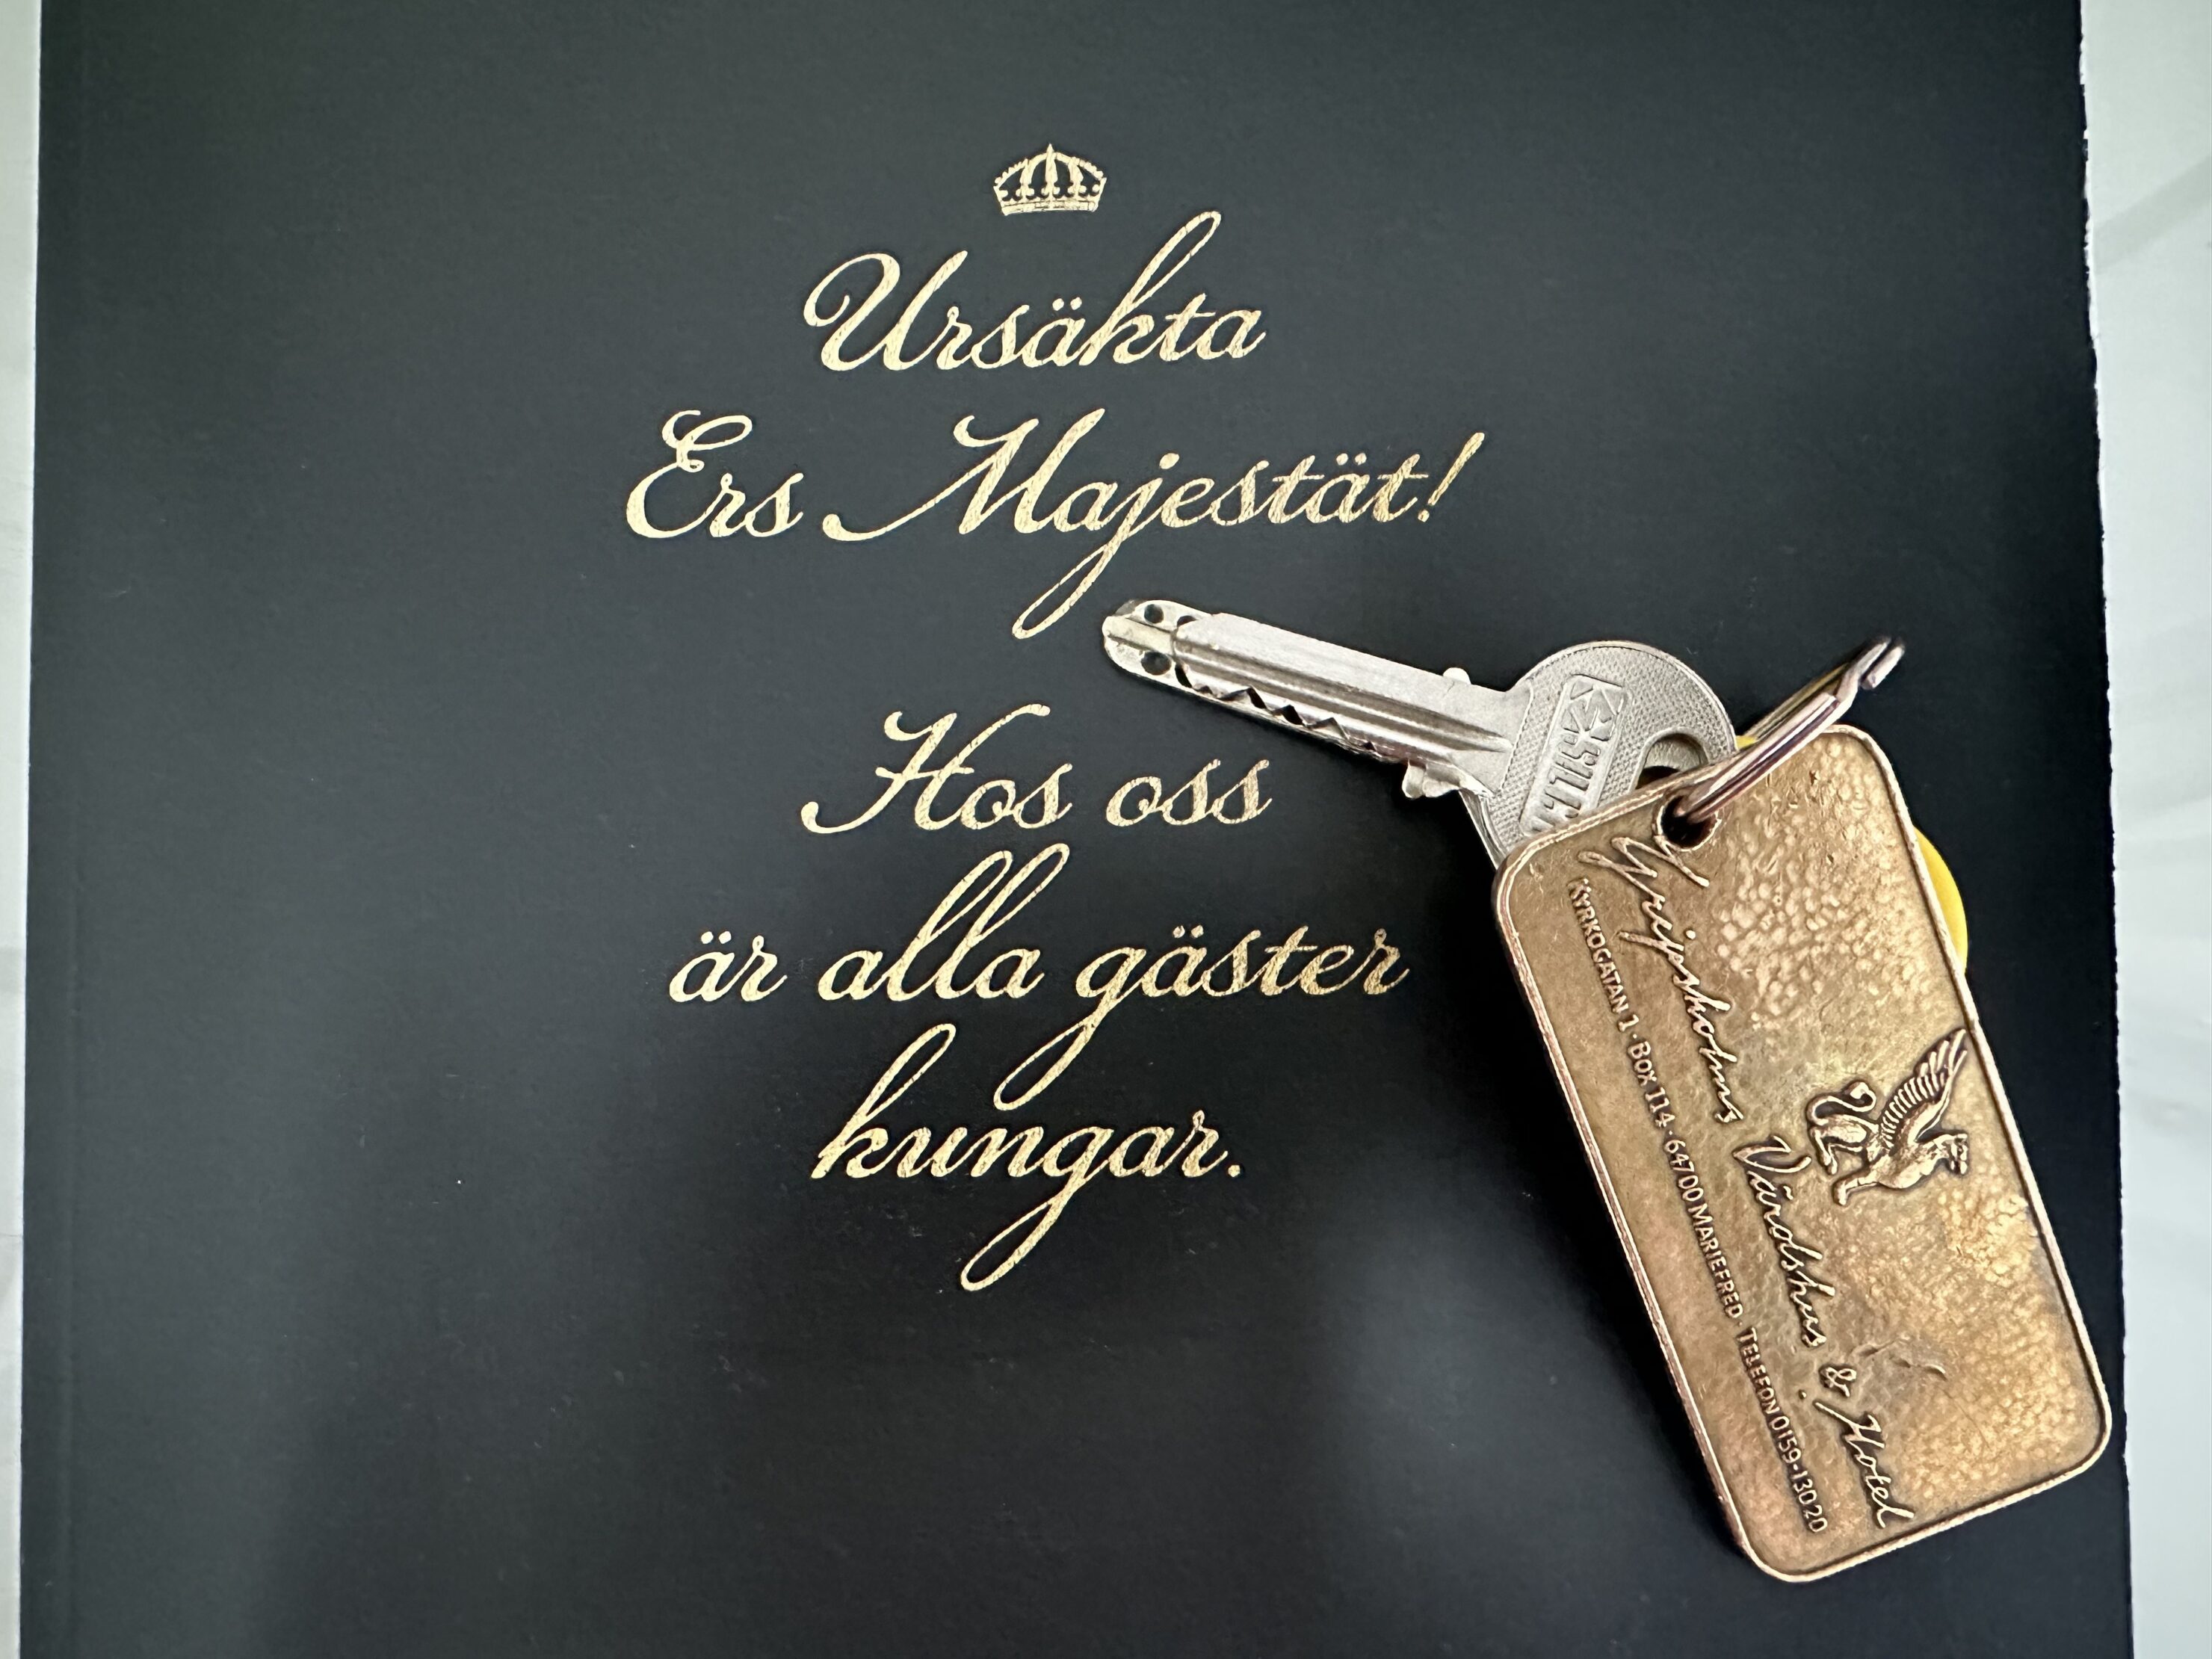 Ursäkta
Ers Majestät!
Hos oss
är alla gäster
kungar.
Gripsholms Värdshus & Hotel
KYRKOGATAN 1 · BOX 114 · 647 00 MARIEFRED · TELEFON 0159-130 20